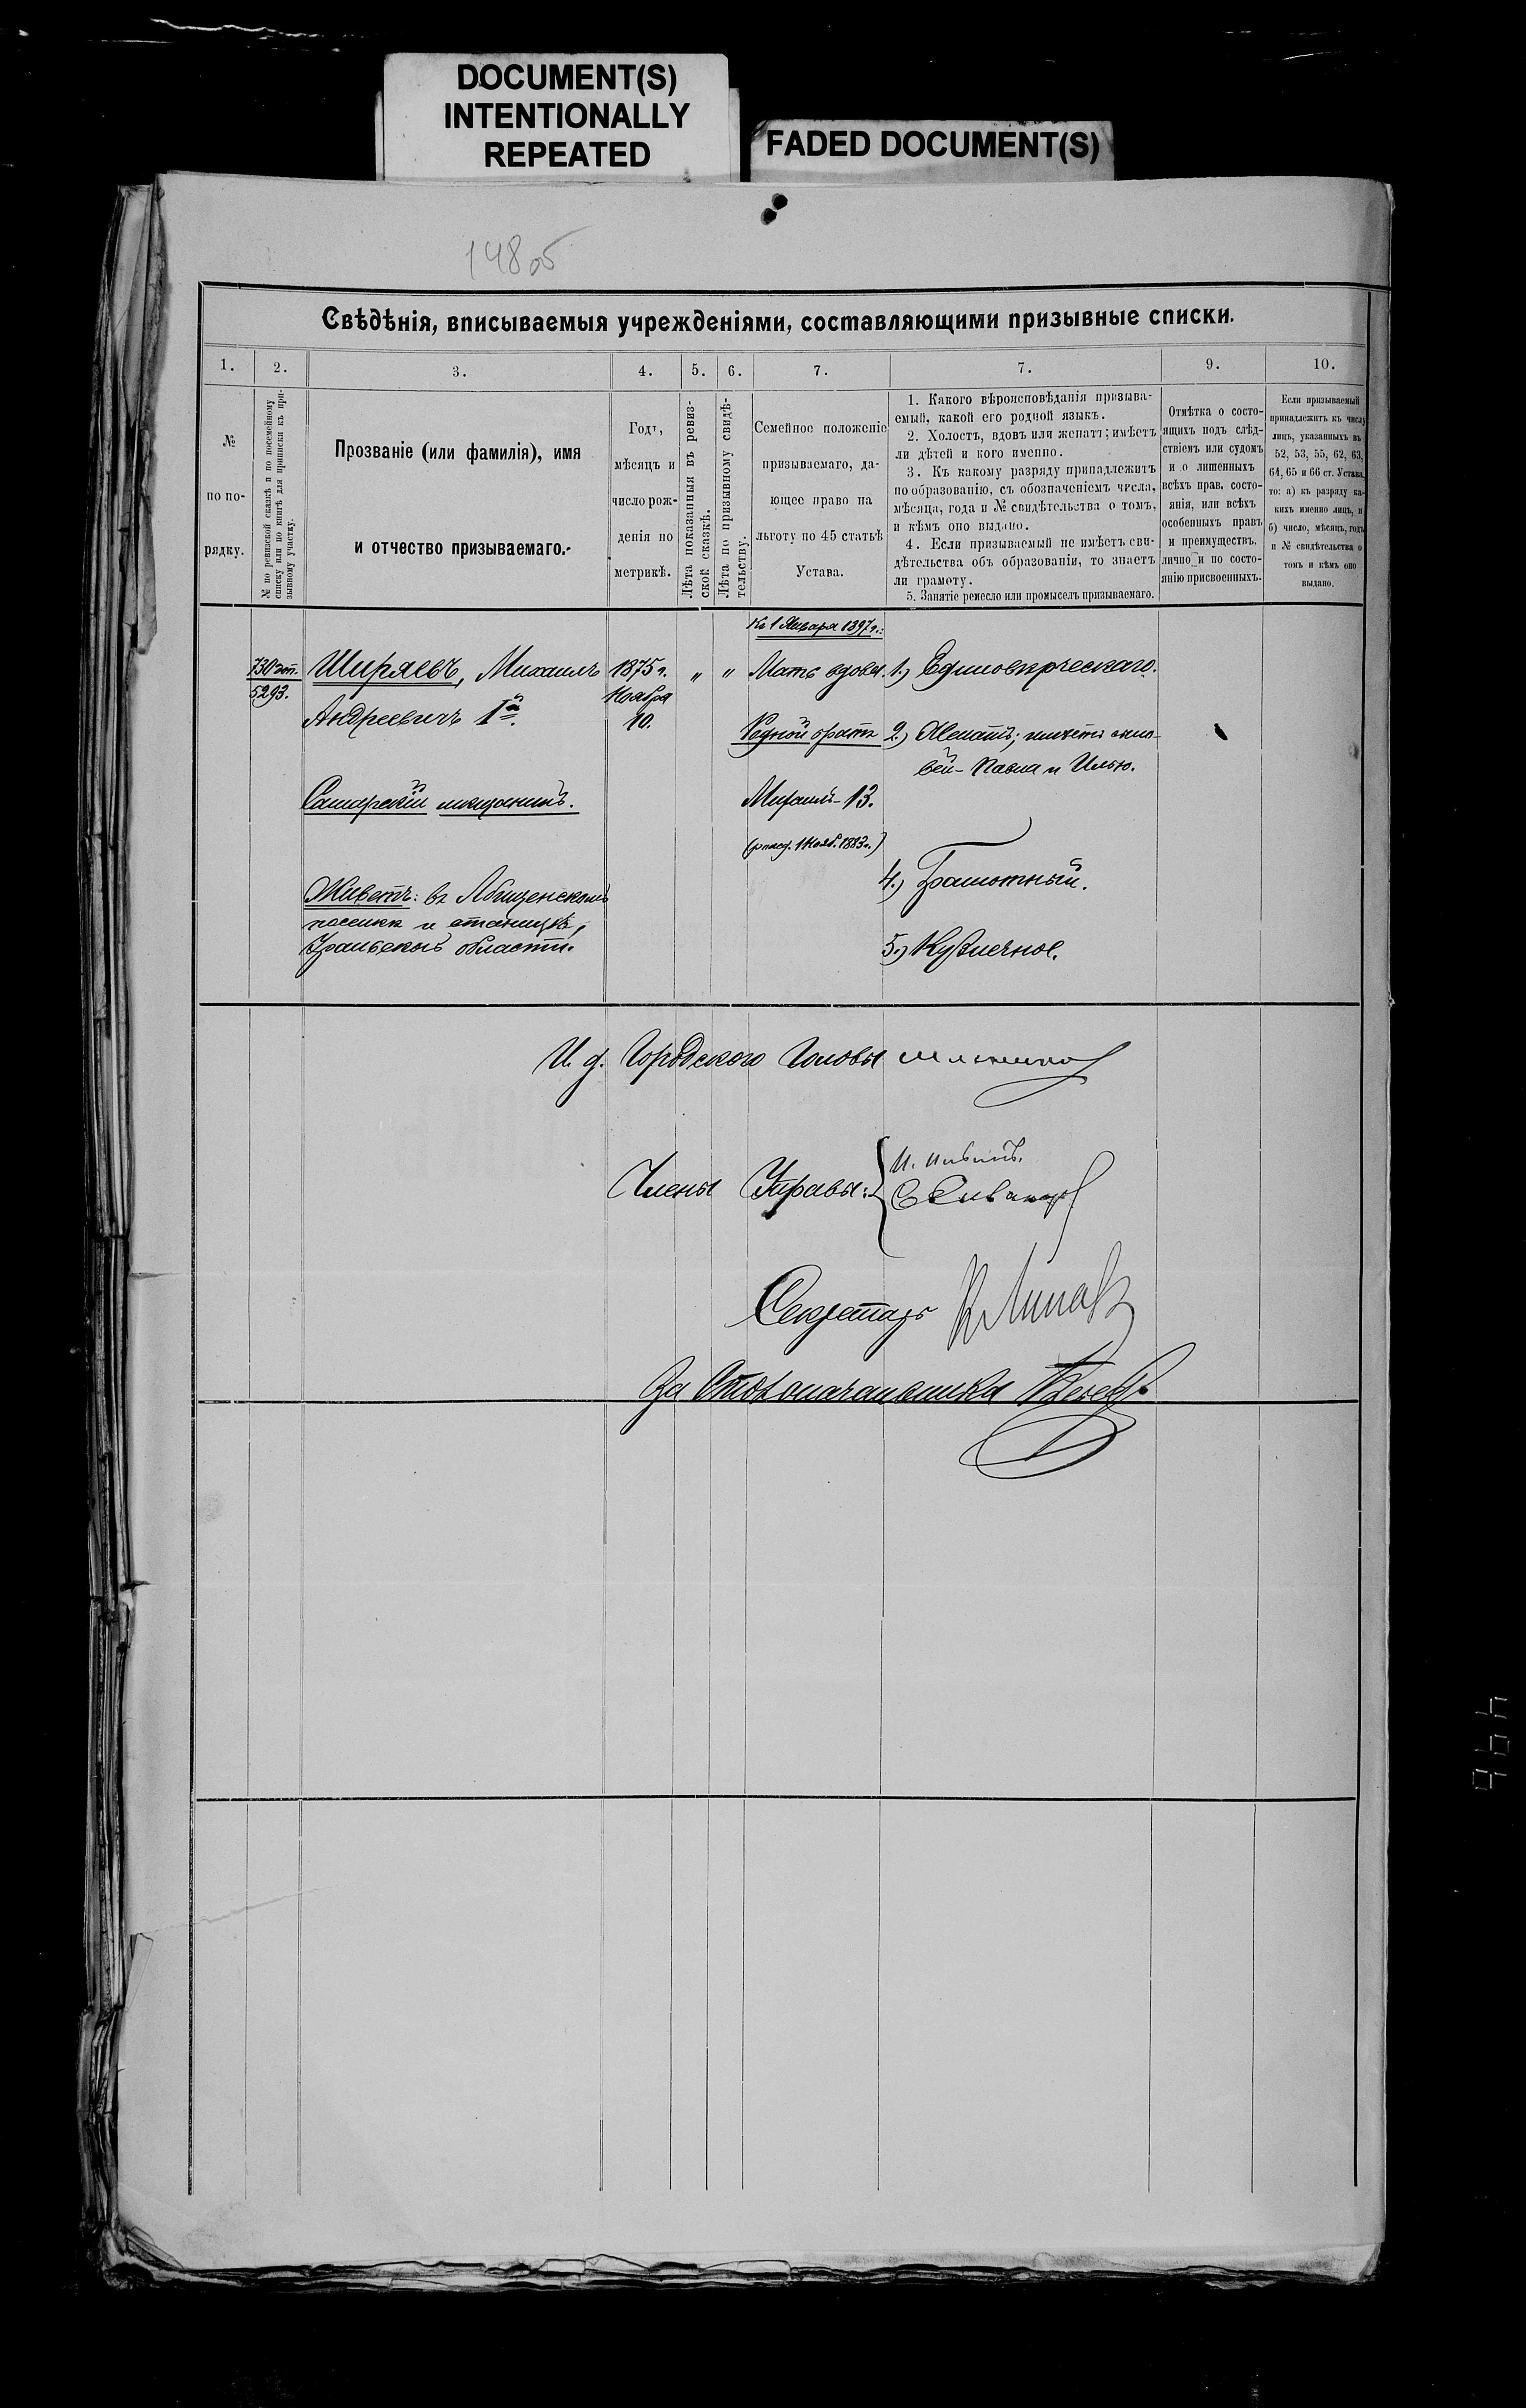 DOCUMENT(S)
INTENTIONALLY
REPEATED
FADED DOCUMENT(S)
148 об
Свѣдѣнія, вписываемыя учрежденіями, составляющими призывные списки.
1.
2.
3.
4.
5.
6.
7.
7.
9.
10.
№
по по-
рядку.
№ по ревизской сказкѣ и по посемейному
списку или по книгѣ для приписки къ при-
зывному участку.
Прозваніе (или фамилія), имя
и отчество призываемаго.
Годъ,
мѣсяцъ и
число рож-
денія по
метрикѣ.
Лѣта показанныя въ ревиз-
ской сказкѣ.
Лѣта по призывному свидѣ-
тельству.
Семейное положеніе
призываемаго, да-
ющее право на
льготу по 45 статьѣ
Устава.
1. Какого вѣроисповѣданія призыва-
емый, какой его родной языкъ.
2. Холостъ, вдовъ или женатъ; имѣетъ
ли дѣтей и кого именно.
3. Къ какому разряду принадлежитъ
по образованію, съ обозначеніемъ числа,
мѣсяца, года и № свидѣтельства о томъ,
и кѣмъ оно выдано.
4. Если призываемый не имѣетъ сви-
дѣтельства объ образованіи, то знаетъ
ли грамоту.
5. Занятіе ремесло или промыселъ призываемаго.
Отмѣтка о состо-
ящихъ подъ слѣд-
ствіемъ или судомъ
и о лишенныхъ
всѣхъ прав, состо-
янія, или всѣхъ
особенныхъ правъ
и преимуществъ,
лично и по состо-
янію присвоенныхъ.
Если призываемый
принадлежитъ къ числу
лицъ, указанныхъ въ
52, 53, 55, 62, 63,
64, 65 и 66 ст. Устава,
то: а) къ разряду ка-
кихъ именно лицъ, и
б) число, мѣсяцъ, годъ
и № свидѣтельства о
томъ и кѣмъ оно
выдано.
730
5293.
Ширяевъ, Михаилъ
Андреевичъ 1й.
Самарскій мѣщанинъ.
Живетъ: въ Лбищенскомъ
поселкѣ и станицѣ,
Уральской области.
1875 г.
Ноября
10.
" "
Къ 1 Января 1897 г.:
Мать вдова.
Родной братъ
Михаилъ - 13.
(рожд. 1 Нояб. 1883 г.)
1.) Единовѣрческаго.
2.) Женатъ; имѣетъ сыно-
вей - Павла и Илью.
4.) Грамотный.
5.) Кузнечное.
И. д. Городского Головы
Члены Управы:
Секретарь
За Столоначальника